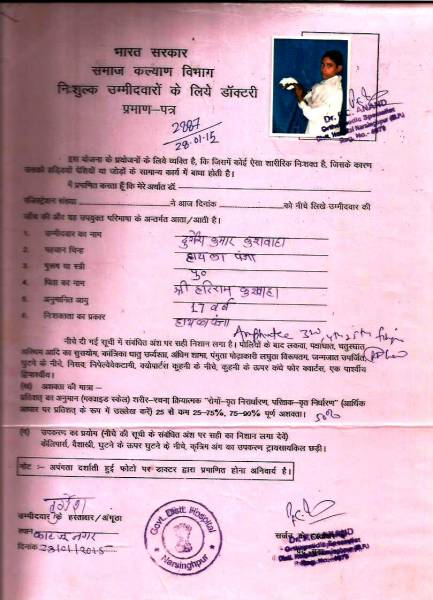 भारत सरकार
समाज कल्याण विभाग
निःशुल्क उम्मीदवारों के लिये डॉक्टरी
प्रमाण-पत्र
2887
28.01.15
Dr. ANAND
Orthopaedic Specialist
Distt. Hospital Narsinghpur (M.P.)
Reg. No.- 4679
इस योजना के प्रयोजनों के लिये व्यक्ति है, कि जिसमें कोई ऐसा शारीरिक निःशक्त है, जिसके कारण
उसकी हड्डियों पेशियों या जोड़ों के सामान्य कार्य में बाधा होती है।
मैं प्रमाणित करता हूँ कि मेरे अर्थात डॉ.
रजिस्ट्रेशन संख्या ने आज दिनांक को नीचे लिखे उम्मीदवार की
जाँच की और यह उपयुक्त परिभाषा के अन्तर्गत आता/आती है।
1. उम्मीदवार का नाम दुर्गेश कुमार कुशवाहा
2. पहचान चिन्ह हाथ का पंजा
3. पुरूष या स्त्री पु०
4. पिता का नाम श्री हरिराम कुशवाहा
5. अनुमानित आयु 17 वर्ष
6. निःशक्तता का प्रकार हाथ का पंजा
नीचे दी गई सूची में संबंधित अंश पर सही निशान लगा है। पोलियो के बाद लकवा, पक्षाघात, चतुरघात,
अस्थिय आदि का सुसयोग, कांत्रिका धातु ऊर्ध्वस्ता, अंग्रिम शामा, पंगुता पोड़ाकारी लघुता विरूपतम, जन्मजात उपर्जित
घुटने के नीचे, कोहनी के नीचे, कुहनी के ऊपर कंधे फोर क्वार्टर, एक पार्श्वीय
द्विपार्श्वीय।
(ख) अशक्तता की मात्रा -
प्रतिशत का अनुमान (मकवाइड स्केल) शरीर-रचना क्रियात्मक "रोगी-वृत निरर्धारण, परिवाक-वृत निर्धारण" (आर्थिक
आधार पर प्रतिशत के रूप में उल्लेख करें) 25 से कम 25-75%, 75-90% पूर्ण अशक्तता। 50%
(ग) उपकरण का प्रयोग (नीचे की सूची के संबंधित अंश पर सही का निशान लगा देवें)
कैलिपर्स, वैशाखी, घुटने के ऊपर घुटने के नीचे, कृत्रिम अंग का उपकरण ट्रायसायकिल छड़ी।
नोट :- अपंगता दर्शाती हुई फोटो पर डाक्टर द्वारा प्रमाणित होना अनिवार्य है।
दुर्गेश
उम्मीदवार के हस्ताक्षर/अंगूठा
स्थान नगर
दिनांक 28/01/2015
Govt. Distt. Hospital
Narsinghpur